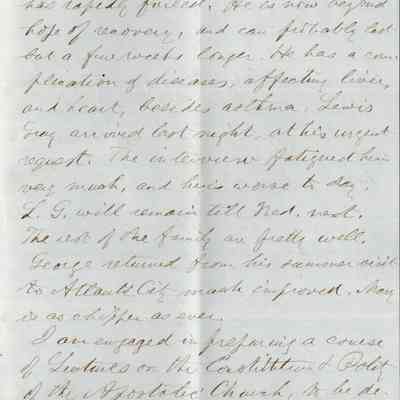 has rapidly failed. He is now beyond
hope of recovery, and can probably last
but a few weeks longer. He has a com
plication of diseases, affecting liver,
and heart, besides asthma. Lewis
Gray arrived last night, at his urgent
request. The interview fatigued him
very much, and he is worse to day.
L. G. will remain till Wed. next.
The rest of the family are pretty well.
George returned from his summer visit
to Atlantic City much improved. Mary
is as chipper as ever.
I am engaged in preparing a course
of Lectures on the Constitution & Polity
of the Apostolic Church, to be de-